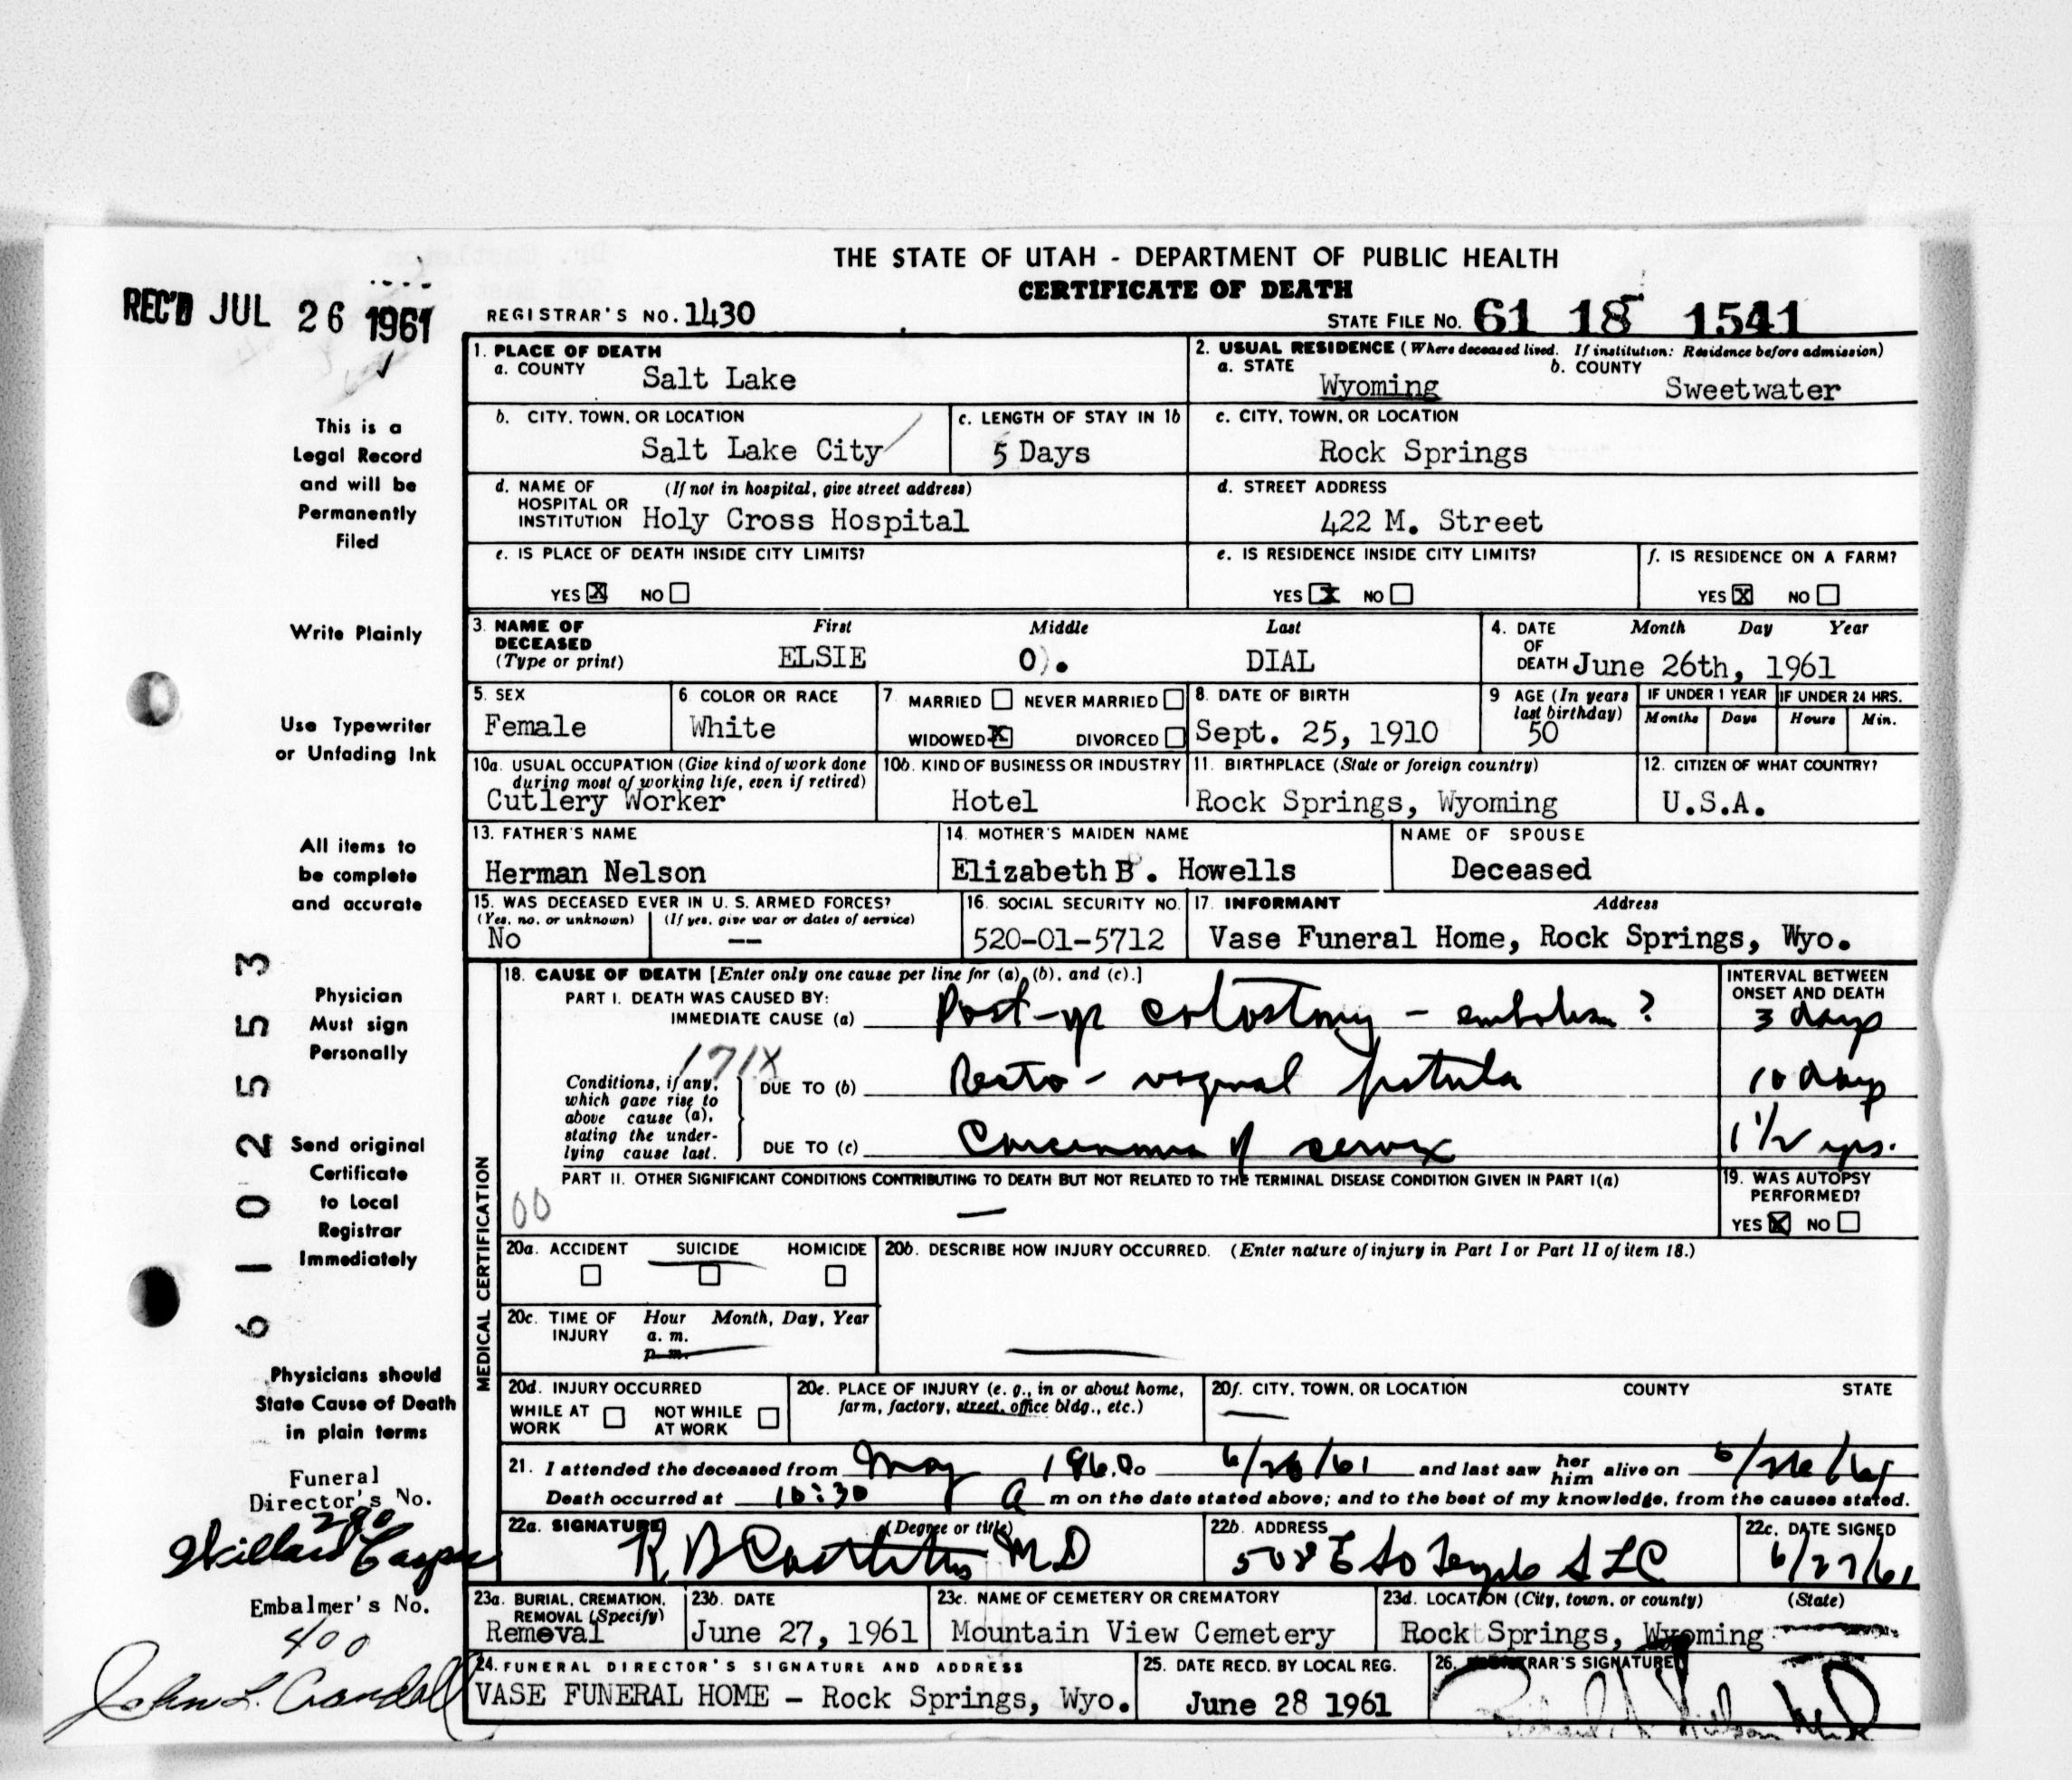 THE STATE OF UTAH - DEPARTMENT OF PUBLIC HEALTH
CERTIFICATE OF DEATH
REC'D JUL 26 1961
REGISTRAR'S NO. 1430
STATE FILE NO. 61 18 1541
1. PLACE OF DEATH
a. COUNTY Salt Lake
2. USUAL RESIDENCE (Where deceased lived. If institution: Residence before admission)
a. STATE Wyoming b. COUNTY Sweetwater
b. CITY, TOWN, OR LOCATION Salt Lake City
c. LENGTH OF STAY IN 1b 5 Days
c. CITY, TOWN, OR LOCATION Rock Springs
d. NAME OF HOSPITAL OR INSTITUTION (If not in hospital, give street address) Holy Cross Hospital
d. STREET ADDRESS 422 M. Street
e. IS PLACE OF DEATH INSIDE CITY LIMITS?
YES X NO
e. IS RESIDENCE INSIDE CITY LIMITS?
YES X NO
f. IS RESIDENCE ON A FARM?
YES X NO
3. NAME OF DECEASED (Type or print)
First Middle Last
ELSIE O. DIAL
4. DATE OF DEATH Month Day Year
June 26th, 1961
5. SEX Female
6. COLOR OR RACE White
7 MARRIED NEVER MARRIED
WIDOWED X DIVORCED
8. DATE OF BIRTH Sept. 25, 1910
9 AGE (In years last birthday) 50
IF UNDER 1 YEAR Months Days
IF UNDER 24 HRS. Hours Min.
10a. USUAL OCCUPATION (Give kind of work done during most of working life, even if retired)
Cutlery Worker
10b. KIND OF BUSINESS OR INDUSTRY Hotel
11. BIRTHPLACE (State or foreign country) Rock Springs, Wyoming
12. CITIZEN OF WHAT COUNTRY? U.S.A.
13. FATHER'S NAME Herman Nelson
14. MOTHER'S MAIDEN NAME Elizabeth B. Howells
NAME OF SPOUSE Deceased
15. WAS DECEASED EVER IN U. S. ARMED FORCES?
(Yes, no, or unknown) (If yes, give war or dates of service)
No --
16. SOCIAL SECURITY NO. 520-01-5712
17. INFORMANT Address
Vase Funeral Home, Rock Springs, Wyo.
MEDICAL CERTIFICATION
18. CAUSE OF DEATH [Enter only one cause per line for (a), (b), and (c).]
INTERVAL BETWEEN ONSET AND DEATH
PART I. DEATH WAS CAUSED BY:
IMMEDIATE CAUSE (a) Post-op colostomy - embolism ? 3 days
171X
Conditions, if any, which gave rise to above cause (a), stating the underlying cause last.
DUE TO (b) Recto - vaginal fistula 10 days
DUE TO (c) Carcinoma of cervix 1 1/2 yrs.
PART II. OTHER SIGNIFICANT CONDITIONS CONTRIBUTING TO DEATH BUT NOT RELATED TO THE TERMINAL DISEASE CONDITION GIVEN IN PART I(a)
00 —
19. WAS AUTOPSY PERFORMED?
YES X NO
20a. ACCIDENT SUICIDE HOMICIDE
20b. DESCRIBE HOW INJURY OCCURRED. (Enter nature of injury in Part I or Part II of item 18.)
20c. TIME OF INJURY Hour Month, Day, Year
a. m.
p. m.
20d. INJURY OCCURRED
WHILE AT WORK NOT WHILE AT WORK
20e. PLACE OF INJURY (e. g., in or about home, farm, factory, street, office bldg., etc.)
20f. CITY, TOWN, OR LOCATION COUNTY STATE
21. I attended the deceased from May 1960 6/26/61 and last saw her him alive on 6/26/61
Death occurred at 10:30 a m on the date stated above; and to the best of my knowledge, from the causes stated.
22a. SIGNATURE (Degree or title) MD
22b. ADDRESS 508 E So Temple SLC
22c. DATE SIGNED 6/27/61
23a. BURIAL, CREMATION, REMOVAL (Specify) Removal
23b. DATE June 27, 1961
23c. NAME OF CEMETERY OR CREMATORY Mountain View Cemetery
23d. LOCATION (City, town, or county) (State)
Rock Springs, Wyoming
24. FUNERAL DIRECTOR'S SIGNATURE AND ADDRESS
VASE FUNERAL HOME - Rock Springs, Wyo.
25. DATE RECD. BY LOCAL REG. June 28 1961
26. REGISTRAR'S SIGNATURE
This is a
Legal Record
and will be
Permanently
Filed
Write Plainly
Use Typewriter
or Unfading Ink
All items to
be complete
and accurate
Physician
Must sign
Personally
Send original
Certificate
to Local
Registrar
Immediately
Physicians should
State Cause of Death
in plain terms
61025553
Funeral
Director's No.
290
Embalmer's No.
400
John L. Crandall